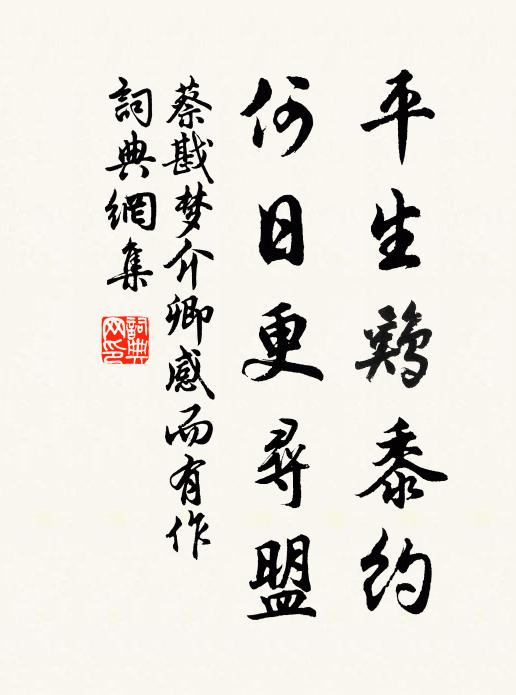 平生鷄黍約
何日更尋盟
蔡戡梦介卿感而有作
詞典網集
詞典网印